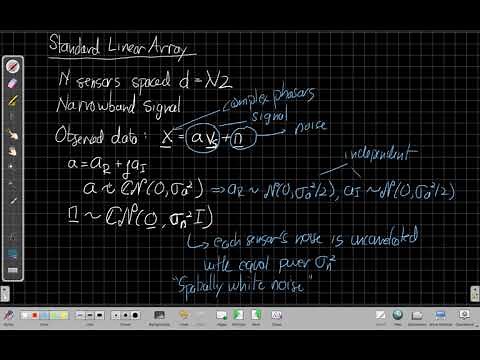 Standard Linear Array
N sensors spaced d = λ/2
Narrowband signal
complex phasors
signal
Observed data: x = a vₛ + n
noise
a = a_R + j a_I
independent
a ~ ℂN(0, σₐ²) ⇒ a_R ~ N(0, σₐ²/2), a_I ~ N(0, σₐ²/2)
n ~ ℂN(0, σₙ² I)
↳ each sensor's noise is uncorrelated
with equal power σₙ²
"Spatially white noise"